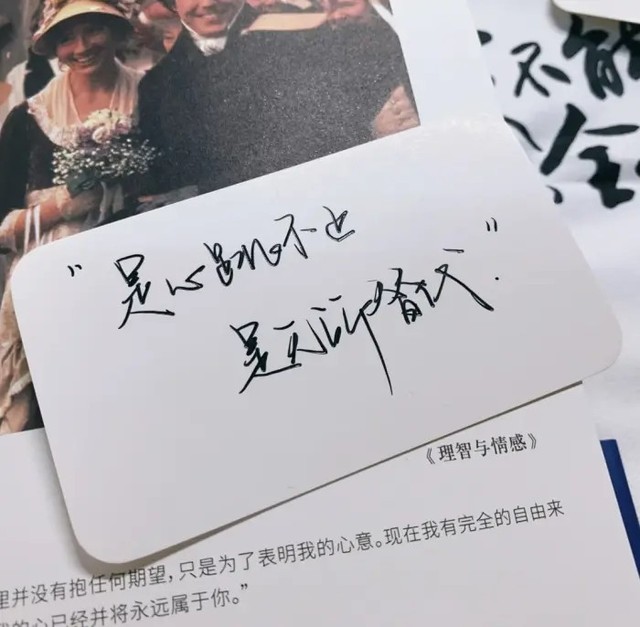 不能
全
"是心跳不止
是无可替代"
《理智与情感》
里并没有抱任何期望，只是为了表明我的心意。现在我有完全的自由来
的心已经并将永远属于你。”